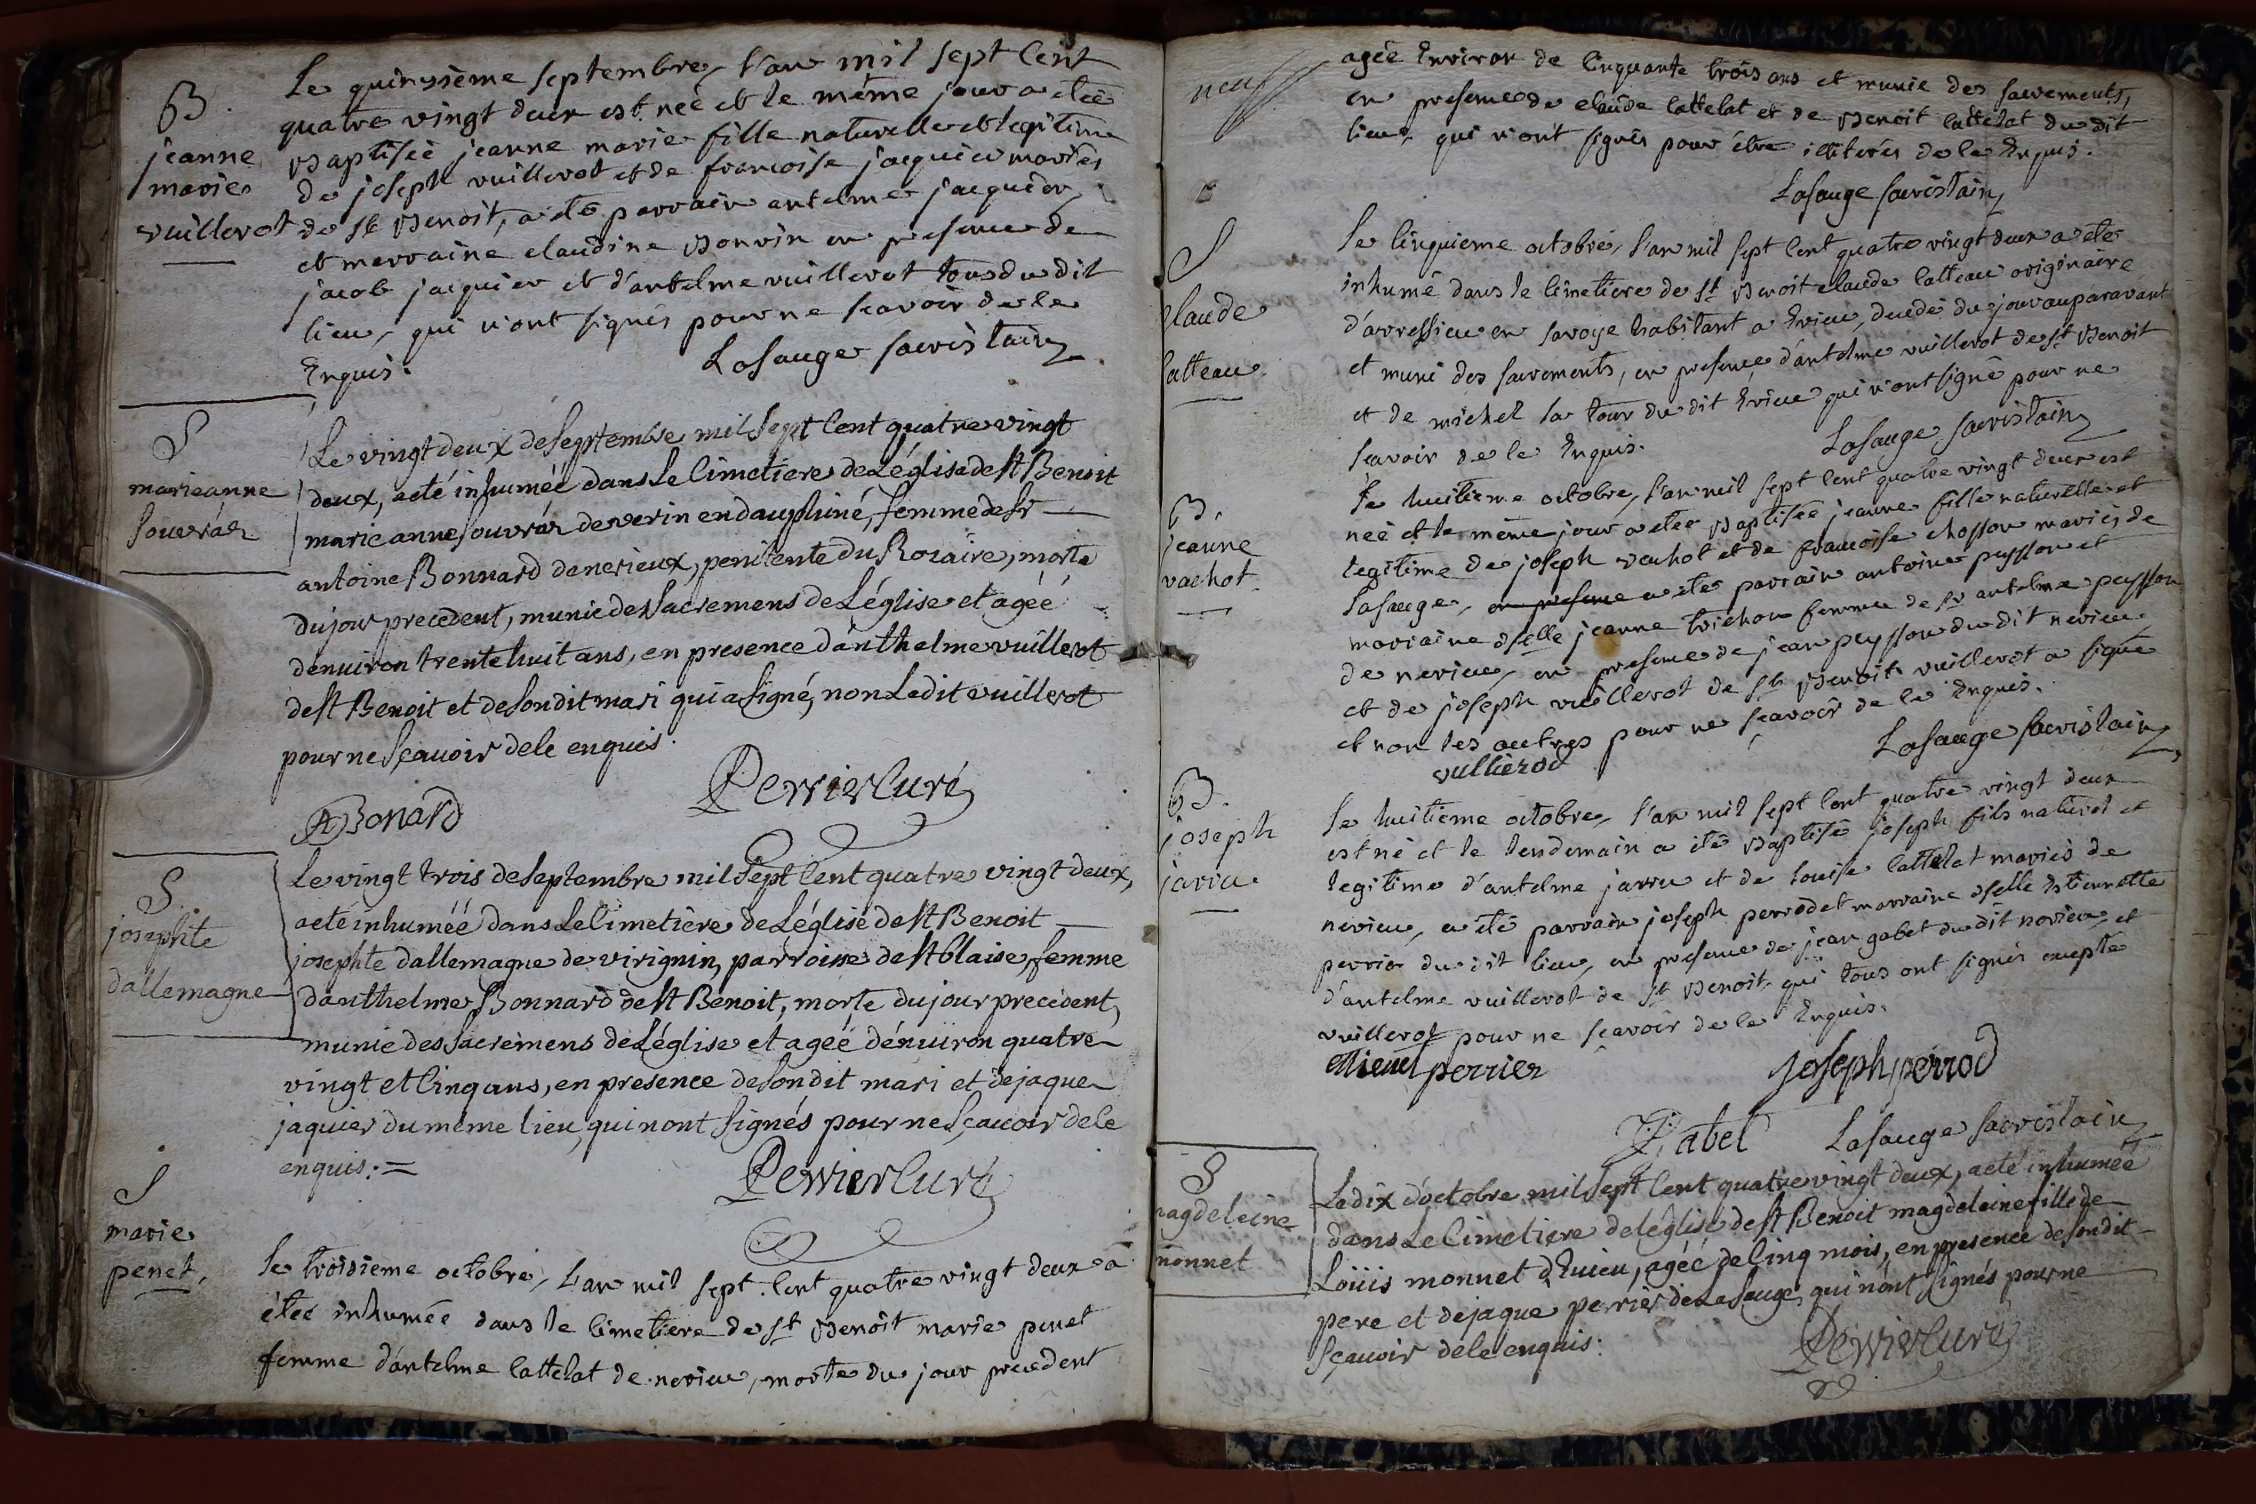 B.
jeanne
marie
vuillerot
Le quinzième septembre, l'an mil sept cent
quatre vingt deux est neé et le même jour a eteé
Baptiseé jeanne marie fille naturelle et legitime
de joseph vuillerot et de francoise jacquier mariés
de st Benoit, a eté parrain antelme jacquier,
et marraine claudine Bonvin en presence de
jacob jacquier et d'antelme vuillerot tous du dit
lieu, qui n'ont signés pour ne scavoir de le
Enquis.
Lasauge sacristain
S
marieanne
Souvrás
Le vingt deux de septembre mil sept cent quatre vingt
deux, a eté inhumeé dans le cimetiere de L'église de st Benoit
marie anne Souvrás de verin en dauphiné, femme de sr
antoine Bonnard de nerieux, penitente du Rozaire, morte
du jour precedent, munie des sacremens de L'église et ageé
denviron trente huit ans, en presence d'anthelme vuillerot
de st Benoit et de son dit mari qui a signé, non Le dit vuillerot
pour ne Sçavoir de le enquis.
ABonard
Perrier Curé
S.
josephte
dallemagne
Le vingt trois de Septembre mil Sept Cent quatre vingt deux,
a eté inhumeé dans Le Cimetière de L'église de st Benoit
josephte dallemagne de virignin, parroisse de st blaise, femme
danthelme Bonnard de st Benoit, morte du jour precedent,
munie des Sacremens de L'église et ageé dénviron quatre
vingt et Cinq ans, en presence de son dit mari et de jaque
jaquier du même lieu, qui nont Signés pour ne Sçavoir de le
enquis. =
Perrier Curé
S
marie
penet,
Le troisieme octobre, l'an mil sept cent quatre vingt deux a
éteé inhumée dans le cimetiere de st Benoit marie penet
femme d'antelme cattelat de nerieu, morte du jour precedent
neuf
ageé Environ de Cinquante trois ans et munie des sacrements,
en presence de claude cattelat et de Benoit cattelat du dit
lieu, qui n'ont signés pour être illiterés de le Enquis.
Lasauge sacristain
S
claude
catteau
Le Cinquieme octobre, l'an mil sept cent quatre vingt deux a eté
inhumé dans le cimetiere de st Benoit claude catteau originaire
d'arressieu en savoye habitant a Evieu, decedé du jour auparavant
et muni des sacrements, en presence d'antelme vuillerot de st Benoit
et de michel la tour du dit Evieu qui n'ont signé pour ne
scavoir de le Enquis.
Lasauge sacristain
B.
jeanne
vachot
Le huitieme octobre, l'an mil sept cent quatre vingt deux est
neé et le même jour a eteé Baptiseé jeanne fille naturelle et
legitime de joseph vachot et de francoise chosson mariés de
Lasauge, en presence a eté parrain antoine peysson et
marraine dselle jeanne trichon femme de sr antelme peysson
de nerieu, en presence de jean peysson du dit nerieu,
et de joseph vuillerot de st Benoit vuillerot a signé
et non les autres pour ne sçavoir de le Enquis.
vullierod
Lasauge sacristain
B.
joseph
jarru
Le huitieme octobre, l'an mil sept cent quatre vingt deux
est né et le lendemain a eté Baptisé joseph fils naturel et
legitime d'antelme jarru et de louise cattelat mariés de
nerieu, a eté parrain joseph perrod et marraine dselle Estiennette
perrier du dit lieu, en presence de jean gabet du dit nerieu, et
d'antelme vuillerot de st Benoit qui tous ont signés excepté
vuillerot pour ne sçavoir de le Enquis.
perrier
joseph perrod
Lasauge sacristain
S
magdeleine
monnet
Le dix d'octobre mil Sept Cent quatre vingt deux, a eté inhumée
dans Le Cimetiere de l'église de st Benoit magdeleine fille de
Loüis monnet d'Evieu, ageé de Cinq mois, en presence de son dit
pere et de jaque perrier de La Sauge, qui n'ont Signés pour ne
Sçavoir de le enquis.
Perrier Curé